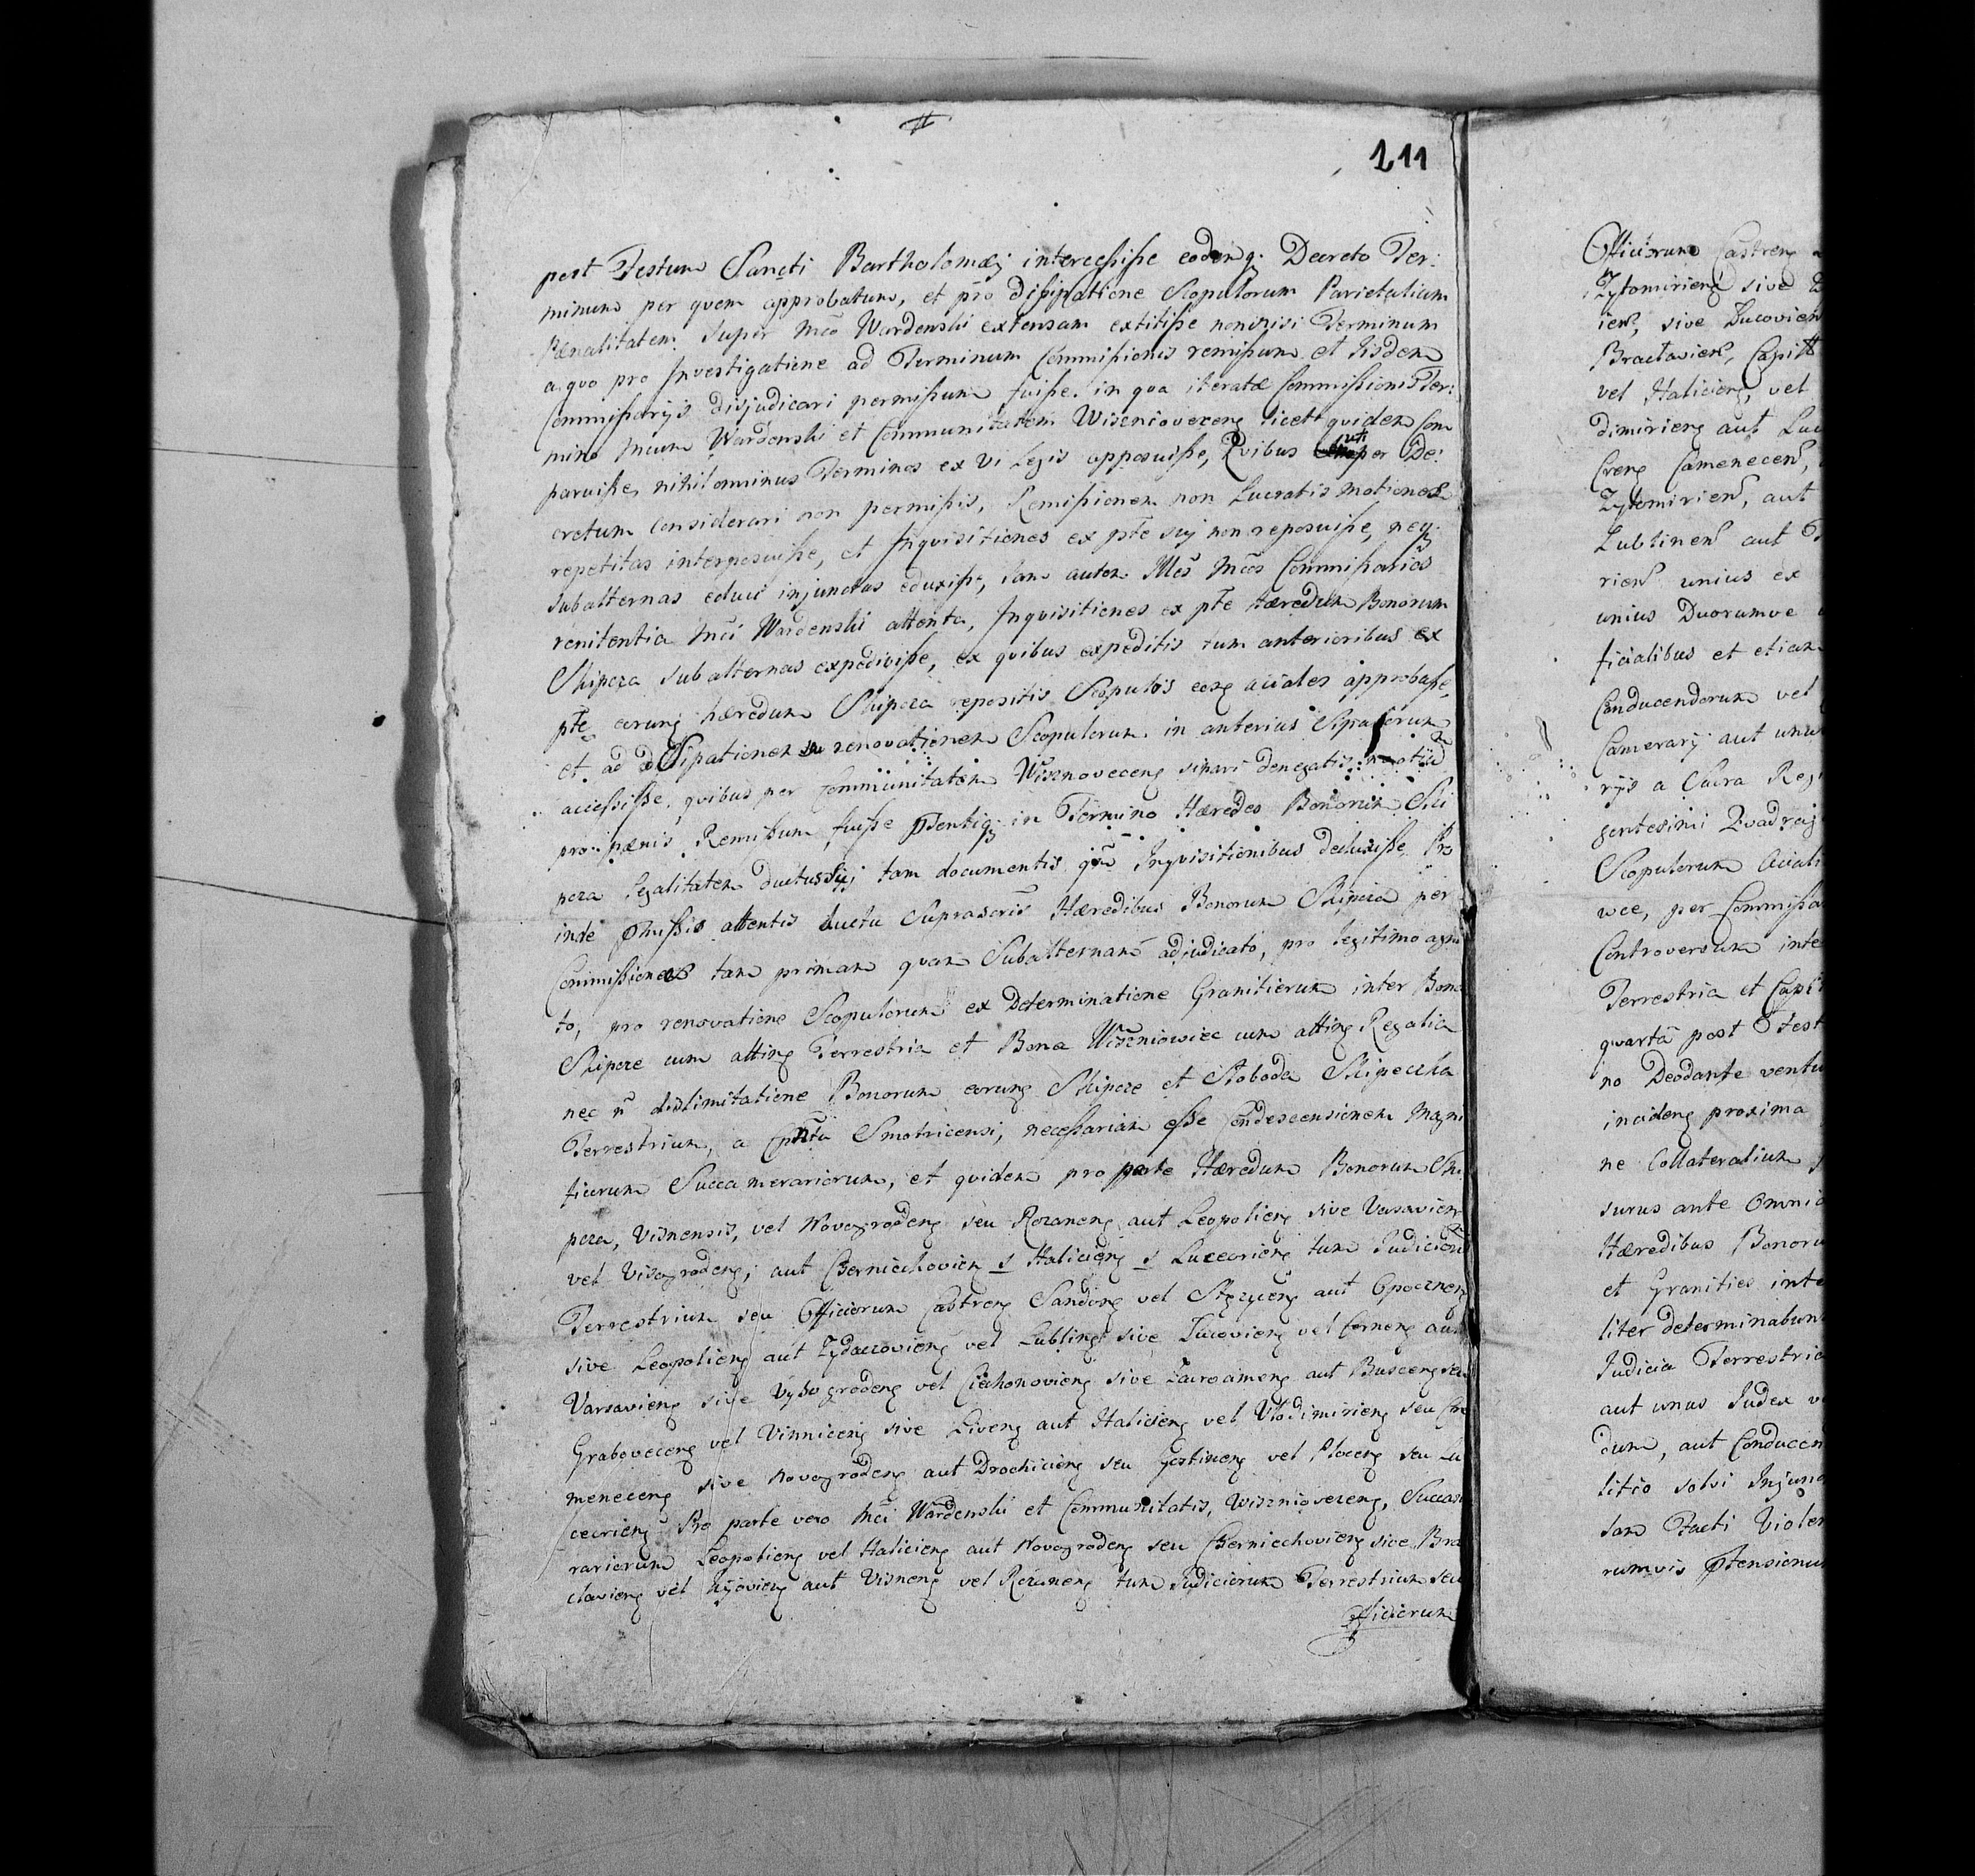 #
211
post Festum Sancti Bartholomæi intercessisse eodemq; Decreto Ter:
minum per quem approbatum, et pro dissipatione Scopulorum Parietalium
Pænalitatem Super Mco Wardenski extensam extitisse nonnisi Terminum
a quo pro Investigatione ad Terminum Commissionis remissum et Iisdem
Commissarijs disjudicari permissum fuisse. in qua iteratæ Commissionis Ter:
mino Mcum Wardenski et Communitatem Wiszniovecens licet quidem Com
paruisse, nihilominus Terminos ex Vi Legis opposuisse, Quibus uti per De:
cretum Considerari non permissis, Remissionem non Lucratis motiones
repetitas interposuisse, et Inquisitiones ex pte sui non reposuisse, neq;
Subalternas educi injunctas eduxisse, Iam autem Illes Mcos Commissarios
renitentia Mci Wardenski attenta, Inquisitiones ex pte Hæredum Bonorum
Skipcza Subalternas expedivisse, ex quibus expeditis tum anterioribus ex
pte eorung hæredum Skipcza repositis Scopulos eosq aciales approbasse,
et ad dissipationem renovationem Scopulorum in anterius
accessisse, quibus per Communitatem Wisznovecens sipari denegatis
pro pænis Remissum fuisse Ptentiq; in Termino Hæredes Bonorum Ski
pcza legalitatem ductus sui tam documentis qm Inquisitionibus deduxisse Pro
inde Pmissis attentis ductu Suprascris Hæredibus Bonorum Skipcza per
Commissiones tam primam quam Subalternam adjudicato, pro legitimo agni
to, pro renovatione Scopulorum ex Determinatione Granitierum inter Bona
Skipcze cum attinq Terrestria et Bona Wiszniowiec cum attinq Regalia
nec n dislimitatione Bonorum eorung Skipcze et Sloboda Skipecka
Terrestrium, a Cptta Smotricensi, necessariam esse Condescensionem Magni
ficorum Succamerariorum, et quidem pro parte Hæredum Bonorum Ski
pcza, Visnensis, vel Novogrodens seu Rozanens aut Leopoliens sive Varsaviens
vel Visogrodens; aut Czerniechoviens s Haliciens s Luceoriens tum Judiciorum
Terrestrium seu Officiorum Castrens Sandom vel Stęzycens aut Opocznens
sive Leopoliens aut Zydaczoviens vel Lublinens sive Lucoviens vel Cernens aut
Varsaviens sive Vyssogrodens vel Ciechonoviens sive Zacroãmens aut Buscens seu
Grabovecens vel Vinnicens sive Livens aut Haliciens vel Vlodimiriens seu Cre
menecens sive Novogrodens aut Drochiciens seu Gostinens vel Plocens seu Lu
ceoriens Pro parte vero Mci Wardenski et Communitatis, Wisznioveceng, Succam
rariorum Leopoliens vel Haliciens aut Novogrodens seu Czerniechoviens sive Bra
claviens vel Kijoviens aut Visnens vel Rozanens tum Judiciorum Terrestrium seu
Officiorum
Officiorum Castrens
Zytomiriens sive
iens, sive Lucoviens
Braclaviens, Capitt
vel Haliciens, vel
dimiriens aut Luc
Crens Camenecens,
Zytomiriens, aut
Lublinens aut
riens unius ex
unius Duorumve
ficialibus et etiam
Conducendorum vel
Camerarj aut unu
rijs a Sacra Reg
gentesimi Quadrag
Scopulorum Aciali
wce, per Commissa
Controversum inte
Terrestria et Capt
quarta post Fest
no Deodante ventu
incidens proxima
ne Collateralium
surus ante omnia
Hæredibus Bonoru
et Granities inte
liter determinabun
Judicia Terrestria
aut unus Judex v
dum, aut Conducen
litio solvi Injun
dam Facti Violen
rumvis Ptensionu